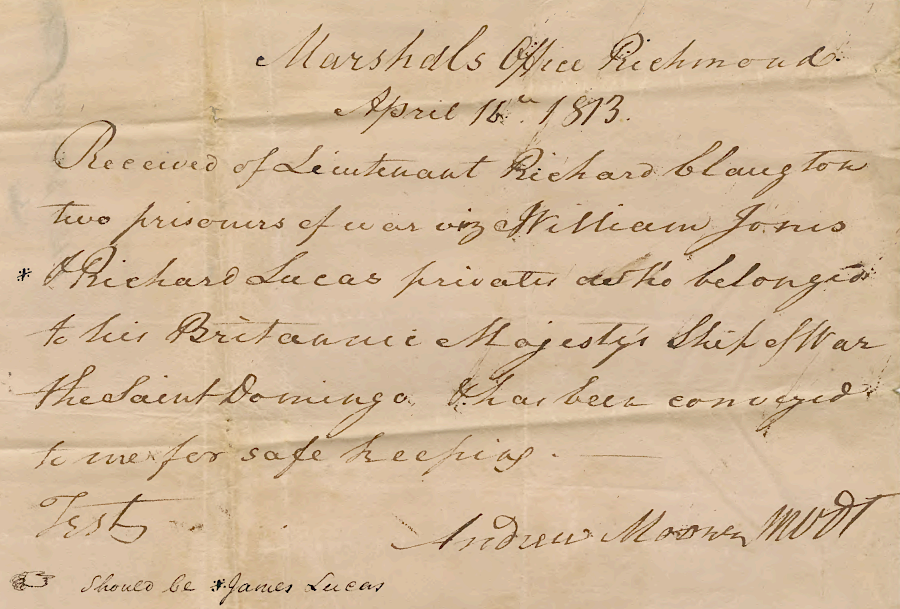 Marshals Office Richmond.
April 16th 1813.
Received of Lieutenant Richard Claugton
two prisoners of war viz William Jones
* & Richard Lucas privates who belonged
to his Britannic Majesty's Ship of War
the Saint Domingo & has been conveyed
to me for safe keeping.
Test
Andrew Moore MVDt
☞ Should be *James Lucas